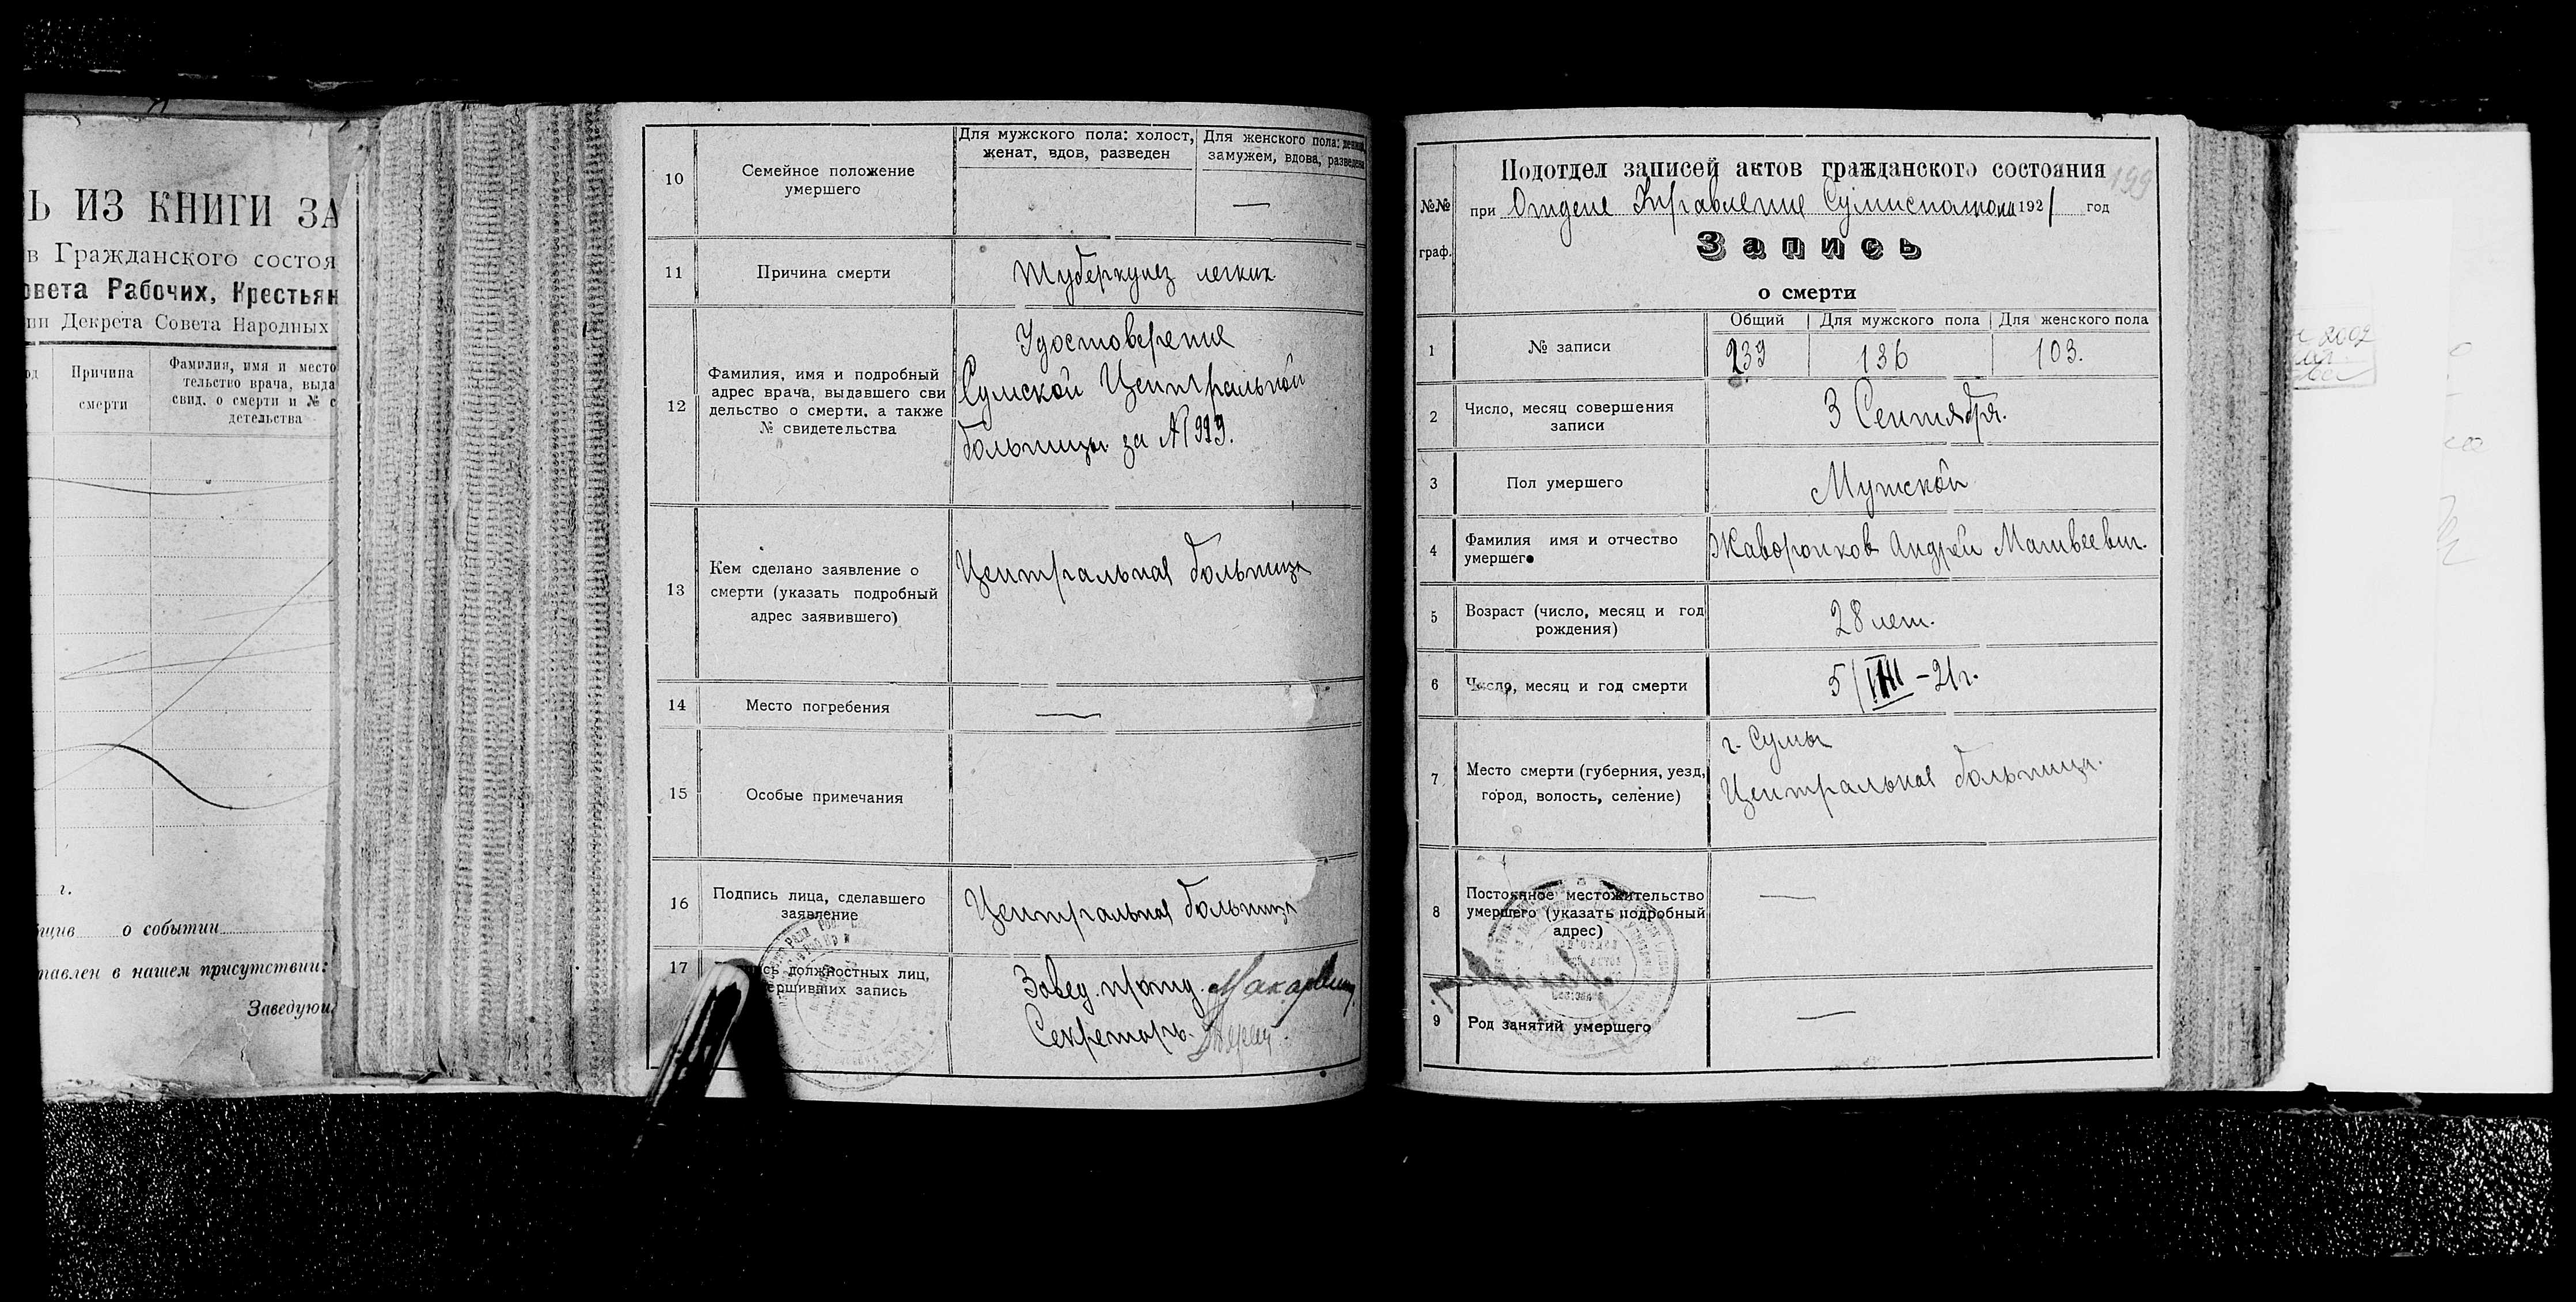 Ь ИЗ КНИГИ ЗА
в Гражданского состоя
овета Рабочих, Крестьян
ии Декрета Совета Народных
Причина смерти
Фамилия, имя и место
тельство врача, выда
свид. о смерти и № с
детельства
г.
о событии
тавлен в нашем присутствии:
Заведующ
10
Семейное положение
умершего
Для мужского пола: холост,
женат, вдов, разведен
Для женского пола: девица,
замужем, вдова, разведена
—
11
Причина смерти
Туберкулез легких
12
Фамилия, имя и подробный
адрес врача, выдавшего сви
дельство о смерти, а также
№ свидетельства
Удостоверение
Сумской Центральной
больницы за №999.
13
Кем сделано заявление о
смерти (указать подробный
адрес заявившего)
Центральная больница
14
Место погребения
—
15
Особые примечания
16
Подпись лица, сделавшего
заявление
Центральная больница
17
ись должностных лиц,
ершивших запись
Завед. подотд.
Секретарь
199
№№
граф.
Подотдел записей актов гражданского состояния
при Отделе Управление Сумисполкома 1921 год
Запись
о смерти
1
№ записи
Общий
Для мужского пола
Для женского пола
239
136
103.
2
Число, месяц совершения
записи
3 Сентября.
3
Пол умершего
Мужской
4
Фамилия имя и отчество
умершего
Жаворонков Андрей Матвеевич.
5
Возраст (число, месяц и год
рождения)
28 лет.
6
Число, месяц и год смерти
5/VIII-21г.
7
Место смерти (губерния, уезд,
город, волость, селение)
г. Сумы
Центральная больница.
8
Постоянное местожительство
умершего (указать подробный
адрес)
—
9
Род занятий умершего
—